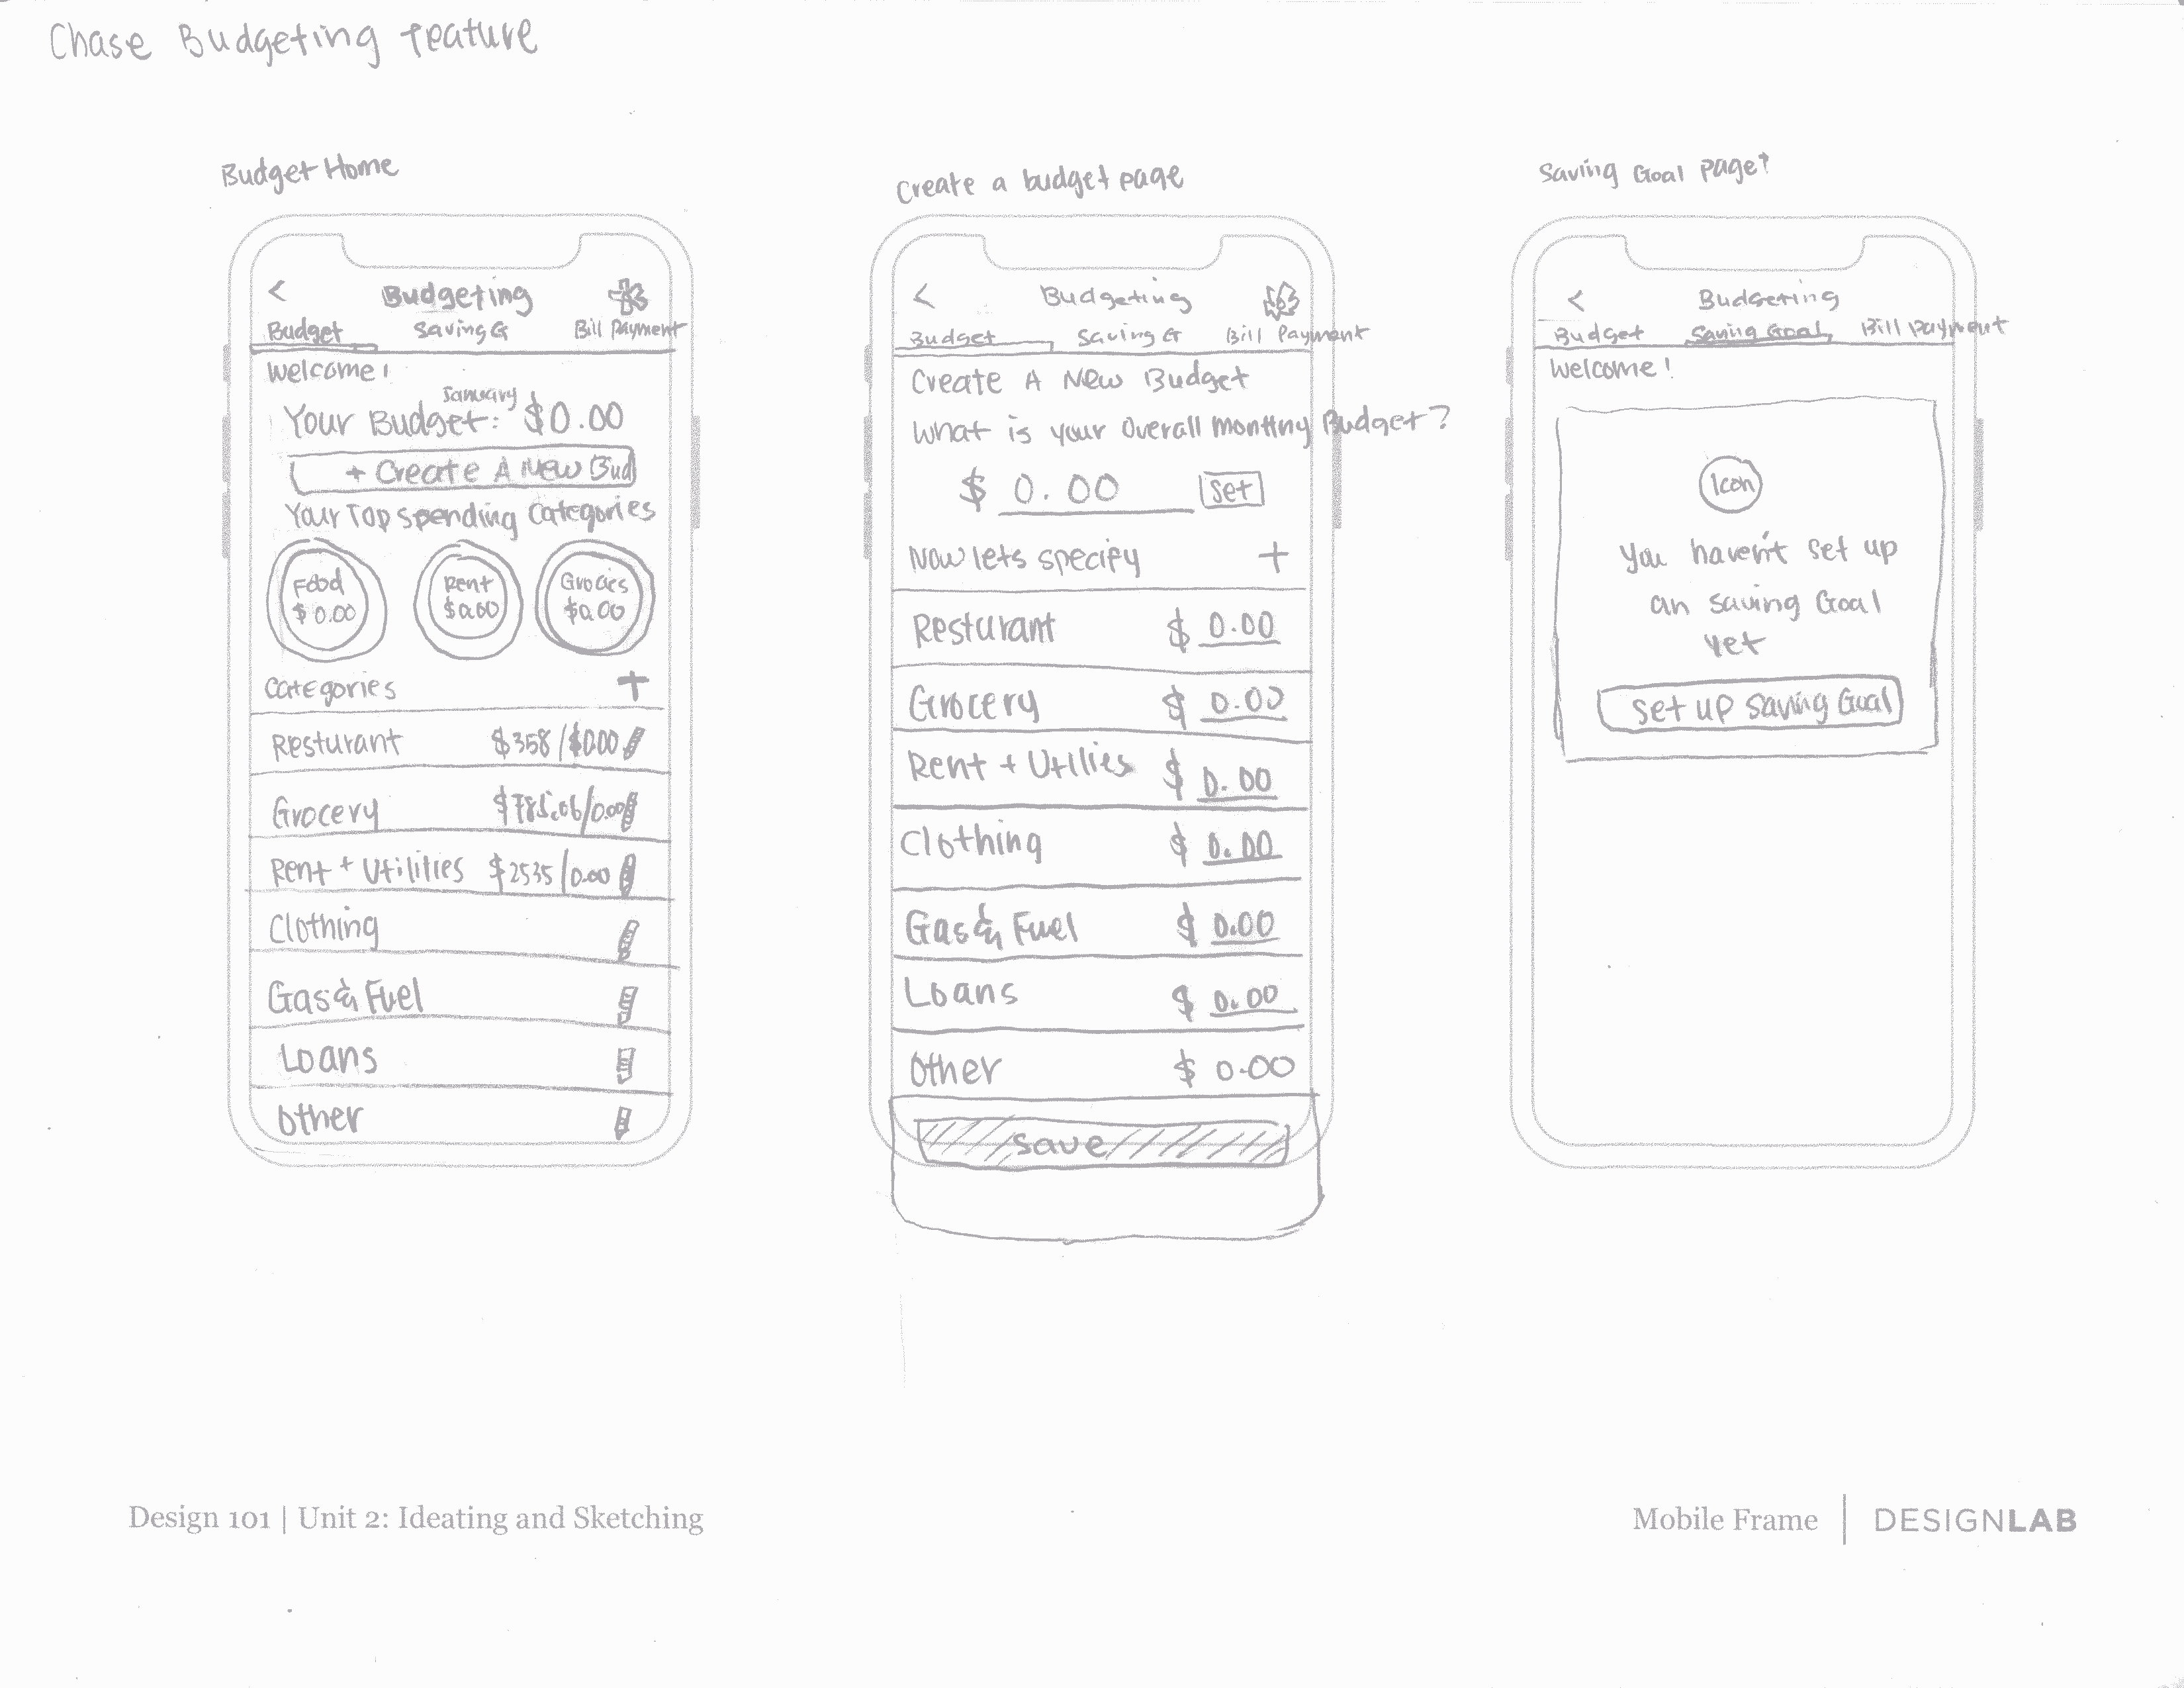 Chase Budgeting Feature
Budget Home
<
Budgeting
Budget Saving G Bill Payment
Welcome!
January
Your Budget: $0.00
+ Create A New Bud
Your Top spending Categories
Food
$0.00
Rent
$0.00
Grocies
$0.00
Categories +
Resturant $358/$0.00
Grocery $785.06/0.00
Rent + Utilities $2535/0.00
Clothing
Gas & Fuel
Loans
Other
Create a budget page
<
Budgeting
Budget Saving G Bill Payment
Create A New Budget
What is your Overall Budget?
$ 0.00 Set
Now lets specify +
Resturant $ 0.00
Grocery $ 0.00
Rent + Utilies $ 0.00
Clothing $ 0.00
Gas & Fuel $ 0.00
Loans $ 0.00
Other $ 0.00
Save
Saving Goal Page?
<
Budgeting
Budget Saving Goal Bill Payment
Welcome!
Icon
You haven't set up
an saving Goal
yet
Set up Saving Goal
Design 101 | Unit 2: Ideating and Sketching
Mobile Frame | DESIGNLAB